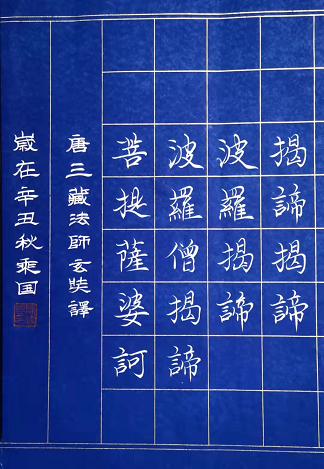 揭諦揭諦
波羅揭諦
波羅僧揭諦
菩提薩婆訶
唐三藏法師玄奘譯
歲在辛丑秋乘国